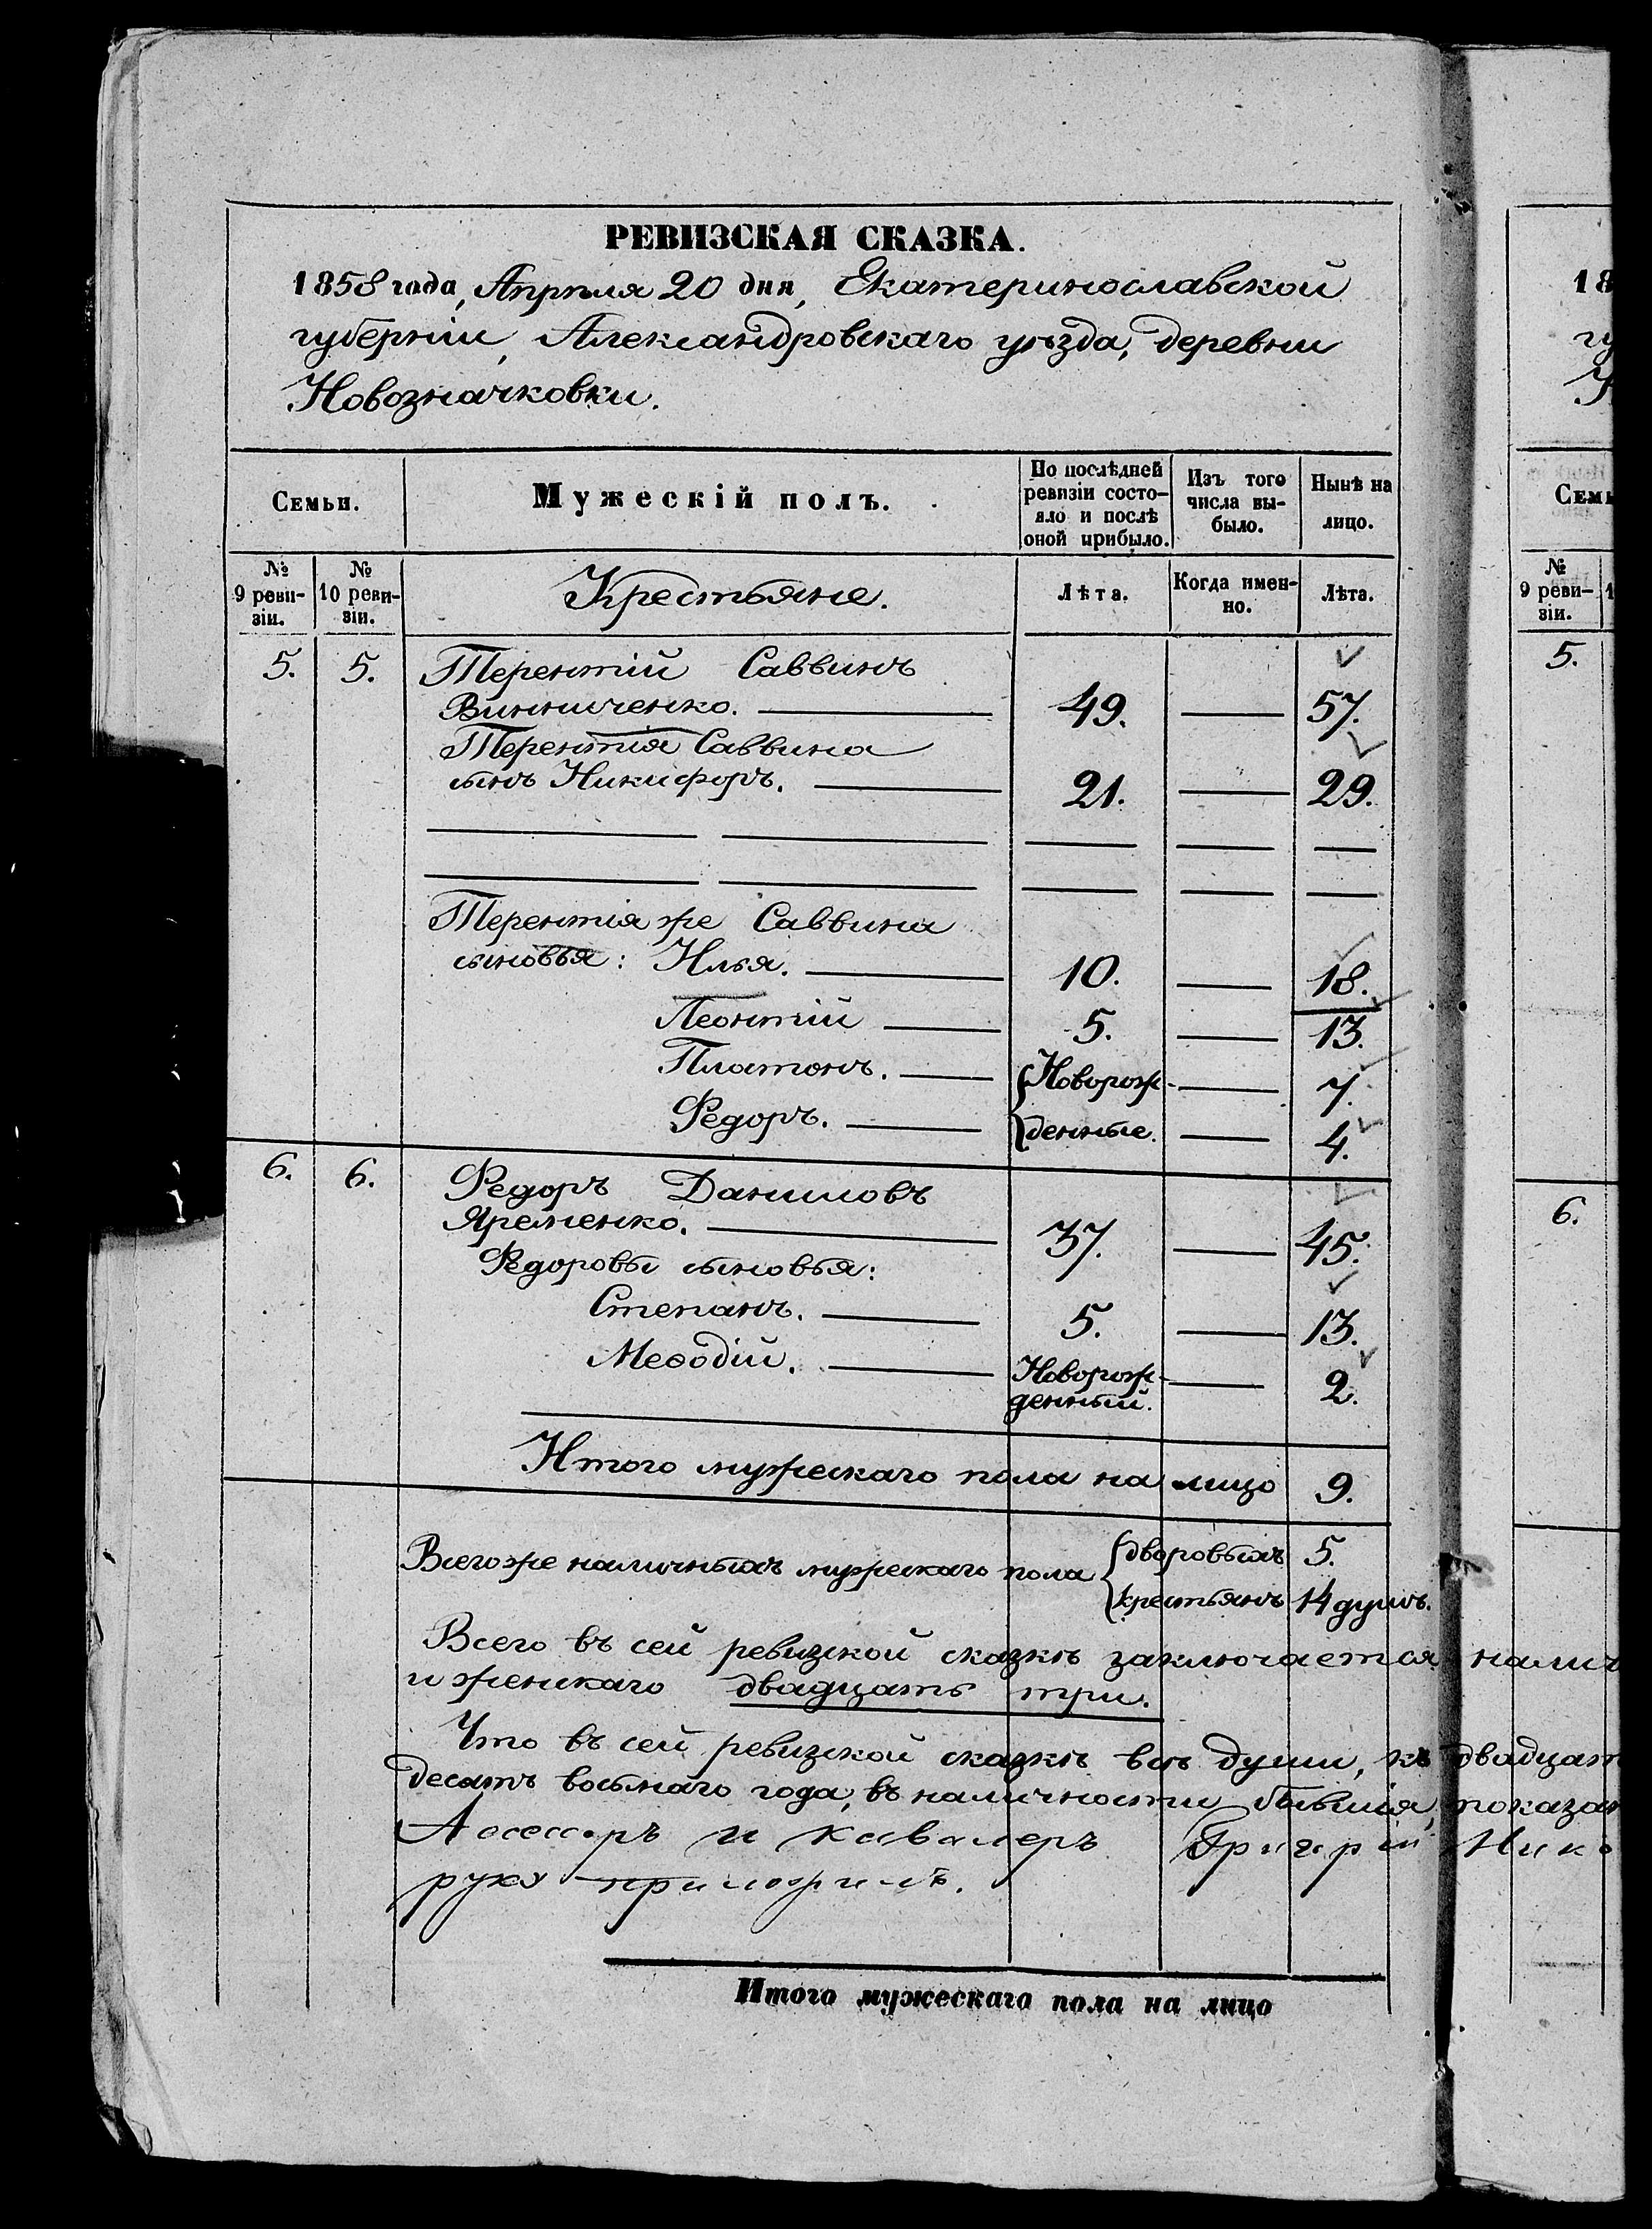 РЕВИЗСКАЯ СКАЗКА.
1858 года, Апрѣля 20 дня, Екатеринославской
губерніи, Александровскаго уѣзда, деревни
Новозначковки.
Семьи.
Мужескій полъ.
По послѣдней ревизіи состо-
яло и послѣ
оной прибыло.
Изъ того
числа вы-
было.
Нынѣ на
лицо.
№
9 реви-
зіи.
№
10 реви-
зіи.
Крестьяне.
Лѣта.
Когда имен-
но.
Лѣта.
5. 5. Терентій Саввинъ
Винниченко. 49. 57.
Терентія Саввина
сынъ Никифоръ. 21. 29.
Терентія же Саввина
сыновья: Илья. 10. 18.
Леонтій 5. 13.
Платонъ. Новорож- 7.
Федоръ. денные. 4.
6. 6. Федоръ Даниловъ
Яременко. 37. 45.
Федоровы сыновья:
Степанъ. 5. 13.
Меѳодій. Новорож-
денный. 2.
Итого мужескаго пола на лицо 9.
Всего же наличныхъ мужескаго пола дворовыхъ 5.
крестьянъ 14 душъ.
Всего въ сей ревизской сказкѣ заключается налич
и женскаго двадцать три.
Что въ сей ревизской сказкѣ всѣ души, къ двадцат
десятъ восьмаго года, въ наличности бывшія, показан
Асессоръ и кавалеръ Григорій Нико
руку приложилъ.
Итого мужескаго пола на лицо
18
гу
Н
Семь
№
9 реви-
зіи.
1
5.
6.